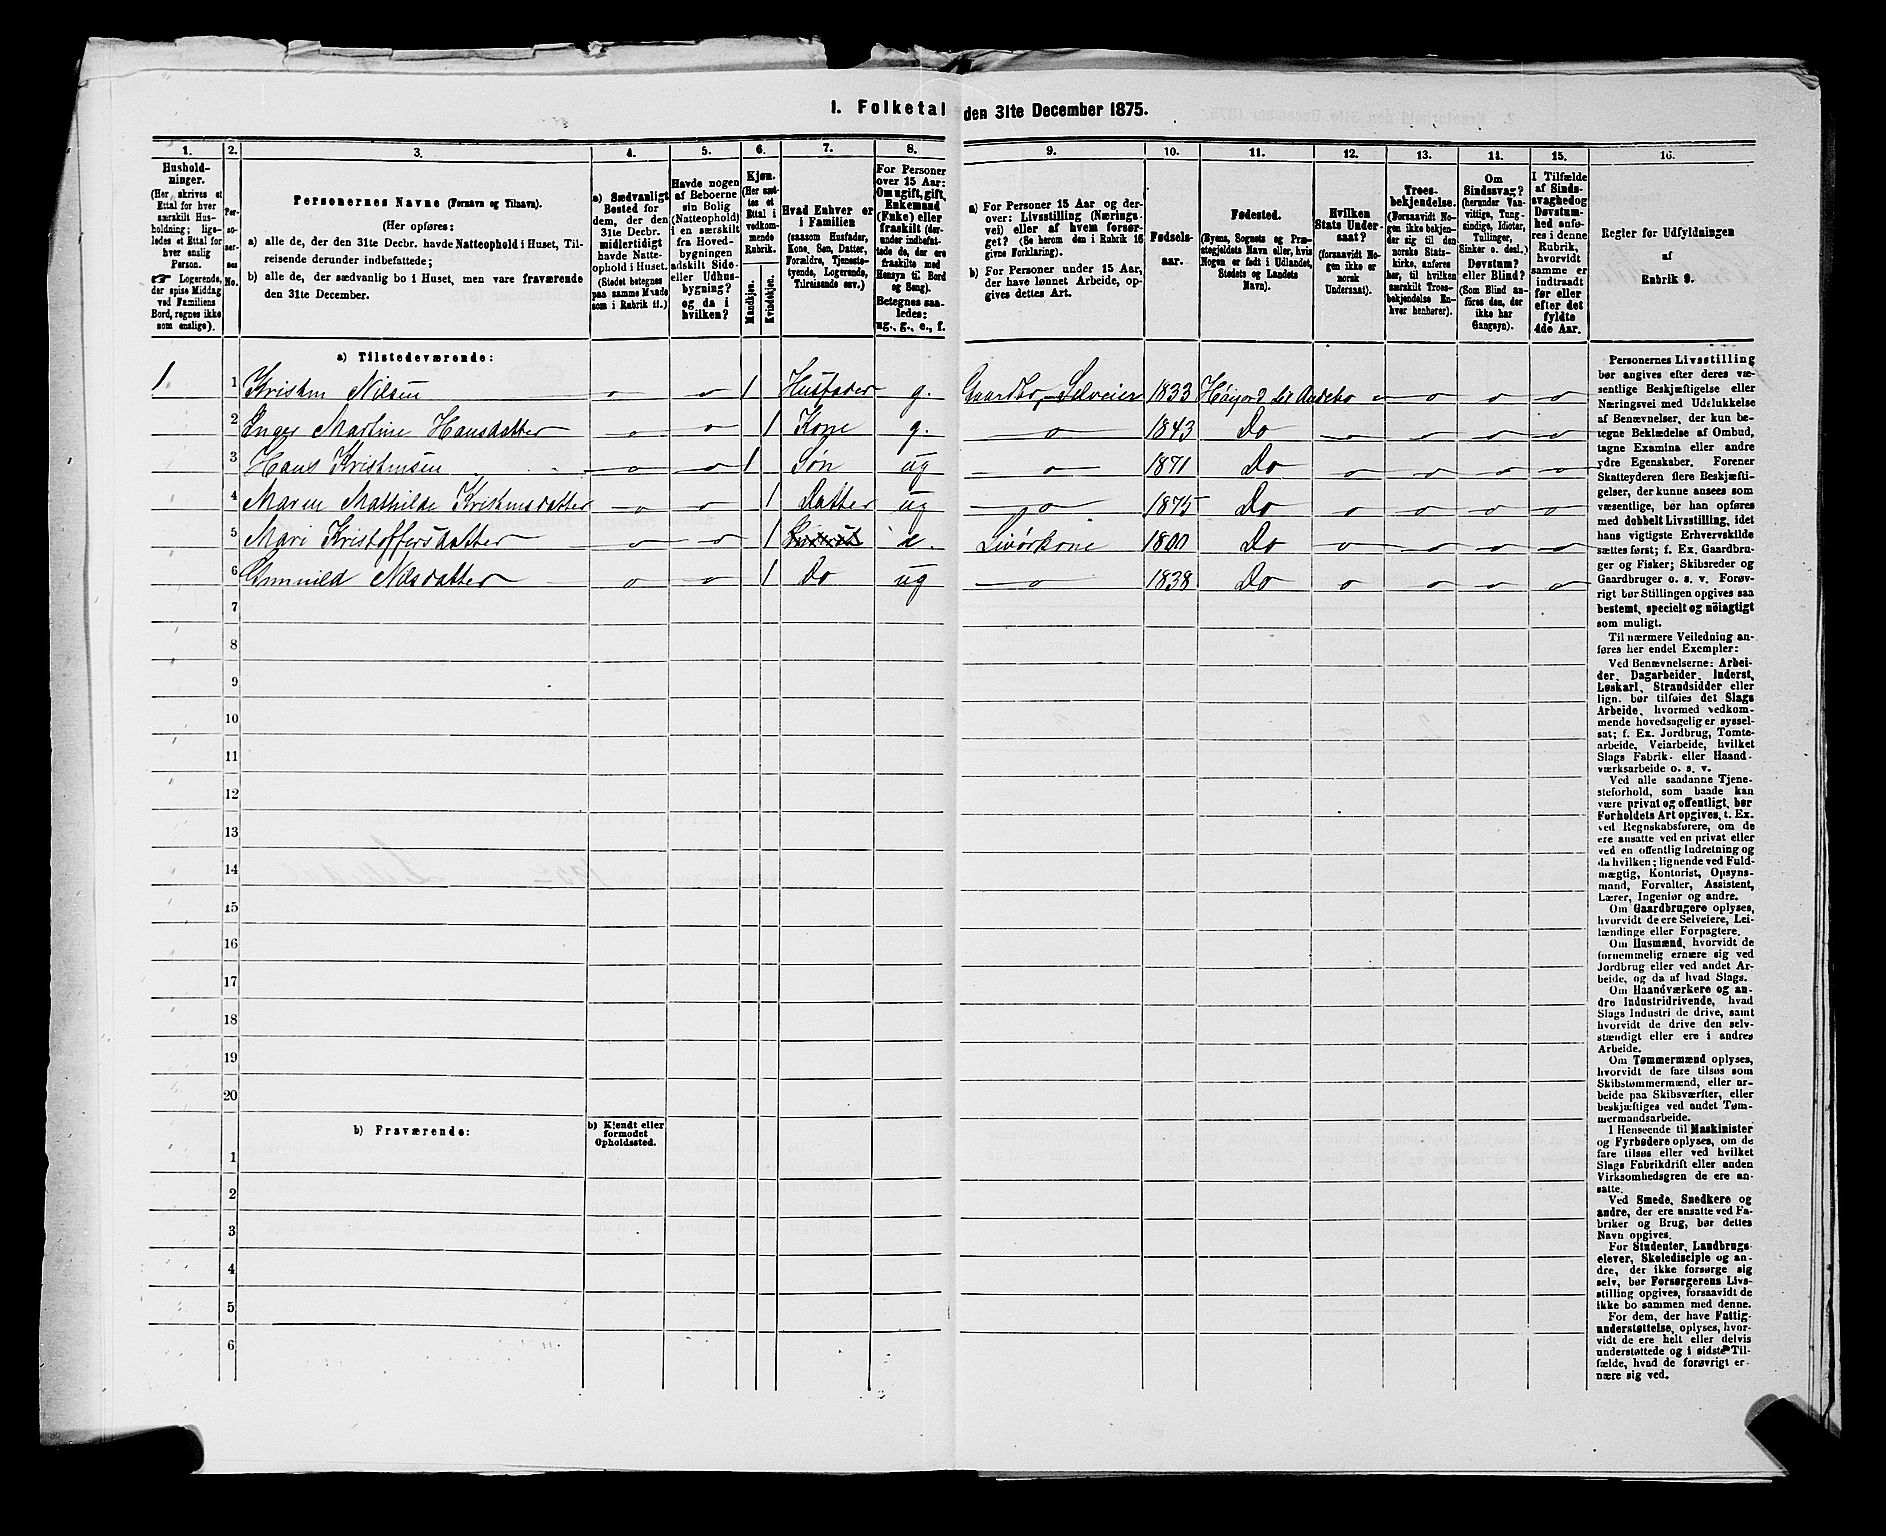 1. Folketal den 31te December 1875.
1. 2. 3. 4. 5. 6. 7. 8. 9. 10. 11. 12. 13. 14. 15. 16.
Hushold-
ninger.
(Her skrives et
Ettal for hver
særskilt Hus-
holdning; lige-
ledes et Ettal for
hver enslig
Person.
☞ Logerende,
der spise Middag
ved Familiens
Bord, regnes ikke
som enslige).
Per-
so-
ner-
nes
No.
Personernes Navne (Fornavn og Tilnavn).
(Her opføres:
a) alle de, der den 31te Decbr. havde Natteophold i Huset, Til-
reisende derunder indbefattede;
b) alle de, der sædvanlig bo i Huset, men vare fraværende
den 31te December.
a) Sædvanligt
Bosted for
dem, der den
31te Decbr.
midlertidigt
havde Natte-
ophold i Huset.
(Stedet betegnes
paa samme Maade
som i Rubrik 11.)
Havde nogen
af Beboerne
sin Bolig
(Natteophold)
i en særskilt
fra Hoved-
bygningen
adskilt Side-
eller Udhus-
bygning?
og da i
hvilken?
Kjøn.
(Her sæt-
tes et
Ettal i
vedkom-
mende
Rubrik.
Mandkjøn.
Kvindekjøn.
Hvad Enhver er
i Familien
(saasom Husfader,
Kone, Søn, Datter,
Forældre, Tjeneste-
tyende, Logerende,
Tilreisende osv.)
For Personer
over 15 Aar:
Om ugift, gift,
Enkemand
(Enke) eller
fraskilt (der-
under indbefat-
tede de, der ere
fraskilte med
Hensyn til Bord
og Seng).
Betegnes saa-
ledes:
ug., g., e., f.
a) For Personer 15 Aar og der-
over: Livsstilling (Nærings-
vei) eller af hvem forsør-
get? (Se herom den i Rubrik 16
givne Forklaring).
b) For Personer under 15 Aar,
der have lønnet Arbeide, op-
gives dettes Art.
Fødsels-
aar.
Fødested.
(Byens, Sognets og Præ-
stegjeldets Navn eller, hvis
Nogen er født i Udlandet,
Stedets og Landets
Navn).
Hvilken
Stats Under-
saat?
(forsaavidt No-
gen ikke er
norsk
Undersaat).
Troes-
bekjendelse.
(Forsaavidt No-
gen ikke bekjen-
der sig til den
norske Stats-
kirke, anføres
her, til hvilken
særskilt Troes-
bekjendelse En-
hver henhører).
Om
Sindssvag?
(herunder Van-
vittige, Tung-
sindige, Idioter,
Tullinger,
Sinker o. desl.)
Døvstum?
eller Blind?
(Som Blind an-
føres den, der
ikke har
Gangsyn).
I Tilfælde
af Sinds-
svaghed og
Døvstum-
hed anfø-
res i denne
Rubrik,
hvorvidt
samme er
indtraadt
før eller
efter det
fyldte
4de Aar.
Regler for Udfyldningen
af
Rubrik 9.
a) Tilstedeværende:
1 1 Kristen Nilsen o o 1 Husfader g. Gaardbr. Selveier 1833 Høijord Andebo o o o o
2 Inger Martine Hansdatter o o 1 Kone g. o 1843 Do o o o o
3 Hans Kristensen o o 1 Søn ug o 1871 Do o o o o
4 Maren Mathilde Kristensdatter o o 1 Datter ug o 1875 Do o o o o
5 Mari Kristoffersdatter o o 1 e. Livørkone 1800 Do o o o o
6 Gunnild Nilsdatter o o 1 Do ug o 1838 Do o o o o
7
8
9
10
11
12
13
14
15
16
17
18
19
20
b) Fraværende:
b) Kjendt eller
formodet
Opholdssted.
1
2
3
4
5
6
Personernes Livsstilling
bør angives efter deres væ-
sentlige Beskjæftigelse eller
Næringsvei med Udelukkelse
af Benævnelser, der kun be-
tegne Beklædelse af Ombud,
tagne Examina eller andre
ydre Egenskaber. Forener
Skatteyderen flere Beskjæfti-
gelser, der kunne ansees som
væsentlige, bør han opføres
med dobbelt Livsstilling, idet
hans vigtigste Erhvervskilde
sættes først; f. Ex. Gaardbru-
ger og Fisker; Skibsreder og
Gaardbruger o. s. v. Forøv-
rigt bør Stillingen opgives saa
bestemt, specielt og nöiagtigt
som muligt.
Til nærmere Veiledning an-
føres her endel Exempler:
Ved Benævnelserne: Arbei-
der, Dagarbeider, Inderst,
Løskarl, Strandsidder eller
lign. bør tilføies det Slags
Arbeide, hvormed vedkom-
mende hovedsagelig er syssel-
sat; f. Ex. Jordbrug, Tomte-
arbeide, Veiarbeide, hvilket
Slags Fabrik- eller Haand-
værksarbeide o. s. v.
Ved alle saadanne Tjene-
steforhold, som baade kan
være privat og offentligt, bør
Forholdets Art opgives, t. Ex.
ved Regnskabsførere, om de
ere ansatte ved en privat eller
ved en offentlig Indretning og
da hvilken; lignende ved Fuld-
mægtig, Kontorist, Opsyns-
mand, Forvalter, Assistent,
Lærer, Ingeniør og andre.
Om Gaardbrugere oplyses,
hvorvidt de ere Selveiere, Lei-
lændinge eller Forpagtere.
Om Husmænd, hvorvidt de
fornemmelig ernære sig ved
Jordbrug eller ved andet Ar-
beide, og da af hvad Slags.
Om Haandværkere og an-
dre Industridrivende, hvad
Slags Industri de drive, samt
hvorvidt de drive den selv-
stændigt eller ere i andres
Arbeide.
Om Tømmermænd oplyses,
hvorvidt de fare tilsøs som
Skibstømmermænd, eller ar-
beide paa Skibsværfter, eller
beskjæftiges ved andet Tøm-
mermandsarbeide.
I Henseende til Maskinister
og Fyrbødere oplyses, om de
fare tilsøs eller ved hvilket
Slags Fabrikdrift eller anden
Virksomhedsgren de ere an-
satte.
Ved Smede, Snedkere og
andre, der ere ansatte ved Fa-
briker og Brug, bør dettes
Navn opgives.
For Studenter, Landbrugs-
elever, Skoledisciple og an-
dre, der ikke forsørge sig
selv, bør Forsørgerens Livs-
stilling opgives, forsaavidt de
ikke bo sammen med denne.
For dem, der have Fattig-
understøttelse, oplyses, hvor-
vidt de ere helt eller delvis
understøttede og i sidste Til-
fælde, hvad de forøvrigt er-
nære sig ved.